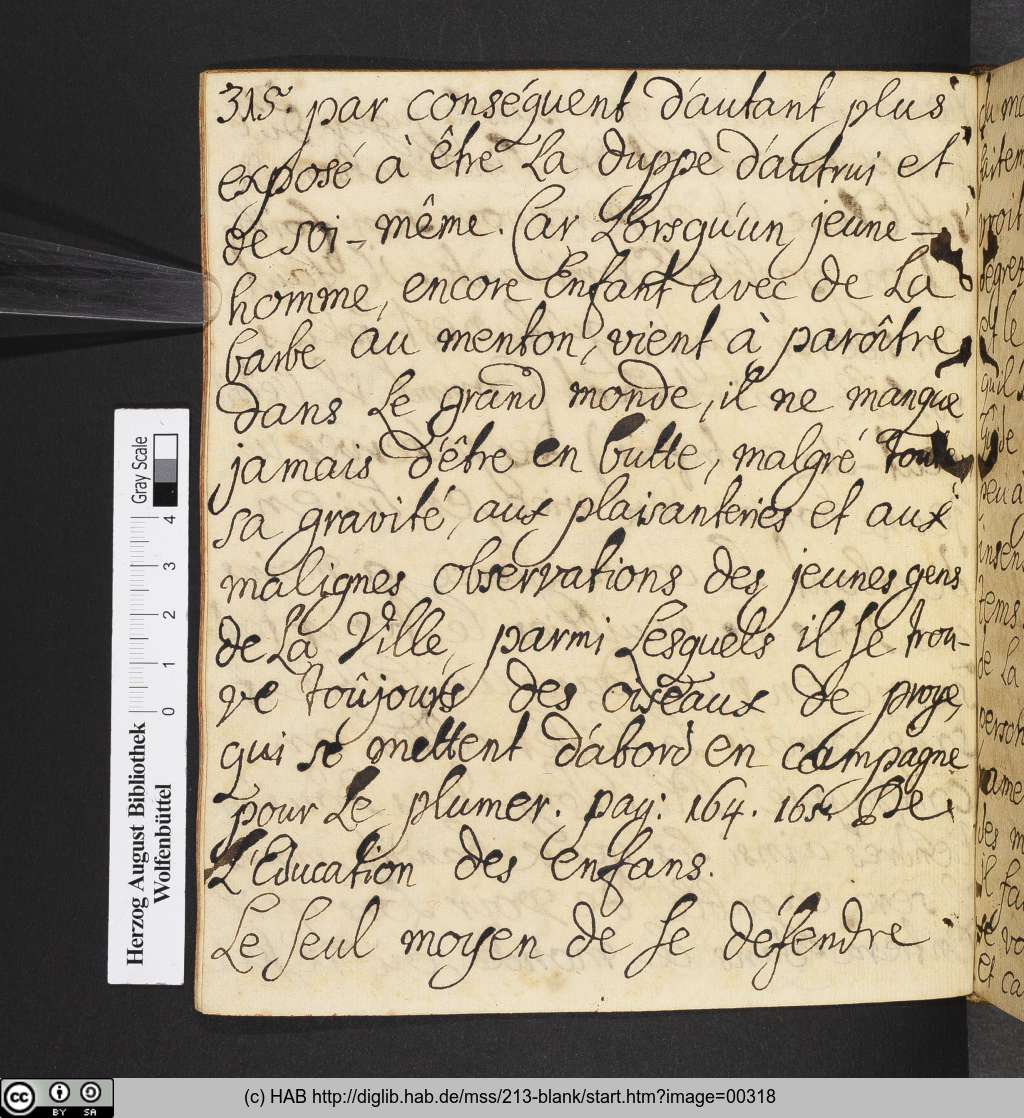 315. par conséquent d'autant plus
exposé à être La duppe d'autrui et
de soi-même. Car Lorsqu'un jeune-
homme, encore Enfant avec de La
barbe au menton, vient à paroître
dans Le grand monde, il ne manque
jamais d'être en butte, malgré toute
sa gravité, aux plaisanteries et aux
malignes observations des jeunes gens
de La Ville, parmi Lesquels il se trou-
ve toûjours des oiseaux de proye,
qui se mettent d'abord en campagne
pour Le plumer. pag: 164. 165. De
L'Education des enfans.
Le seul moyen de se défendre
Herzog August Bibliothek
Wolfenbüttel
0 1 2 3 4
Gray Scale
(c) HAB http://diglib.hab.de/mss/213-blank/start.htm?image=00318
cc BY SA